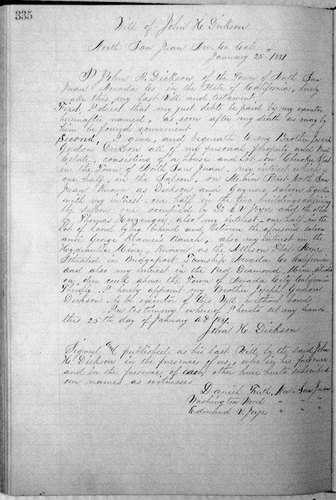 335
Will of John H. Dickson
North San Juan Nev. Co. Cal
January 25th 1881
I John H. Dickson, of the Town of North San
Juan Nevada Co in the State of California, hereby
make this my last Will and testament.
First, I desire that my just debts be paid by my executor
hereinafter named, as soon after my death as may by
him be found convenient.
Second, I give, and bequeath to my Brother Joseph
Gordon Dickson all of my personal property and real
Estate, consisting of a house and lot on Church Street
in the Town of North San Juan, my interest which is
one half, in the Saloon, on Main Street San
Juan known as Dickson and saloon together
with my interest, one half in the two buildings adjoining
the saloon one occupied by Joyce and the other
by Thomas also my interest, one half in the
lot of land lying behind and between the aforesaid saloon
and George also my interest in the
Mine, known as the
Situated in Bridgeport Township Nevada Co California
and also my interest in the Red Diamond Mine,
near the Town of Nevada City California
Thirdly, I hereby appoint my Brother Joseph Gordon
Dickson to be executor of this Will without bonds
In testimony whereof I hereto set my hand
this 25th day of January A.D. 1881.
John H. Dickson
Signed and published as his last Will by the said John
H. Dickson in the presence of us, who in his presence
and in the presence of each other have hereto subscribed
our names as witnesses
Daniel Furth, North San Juan
Washington Wood " " "
Edmund N. Joyce " " "